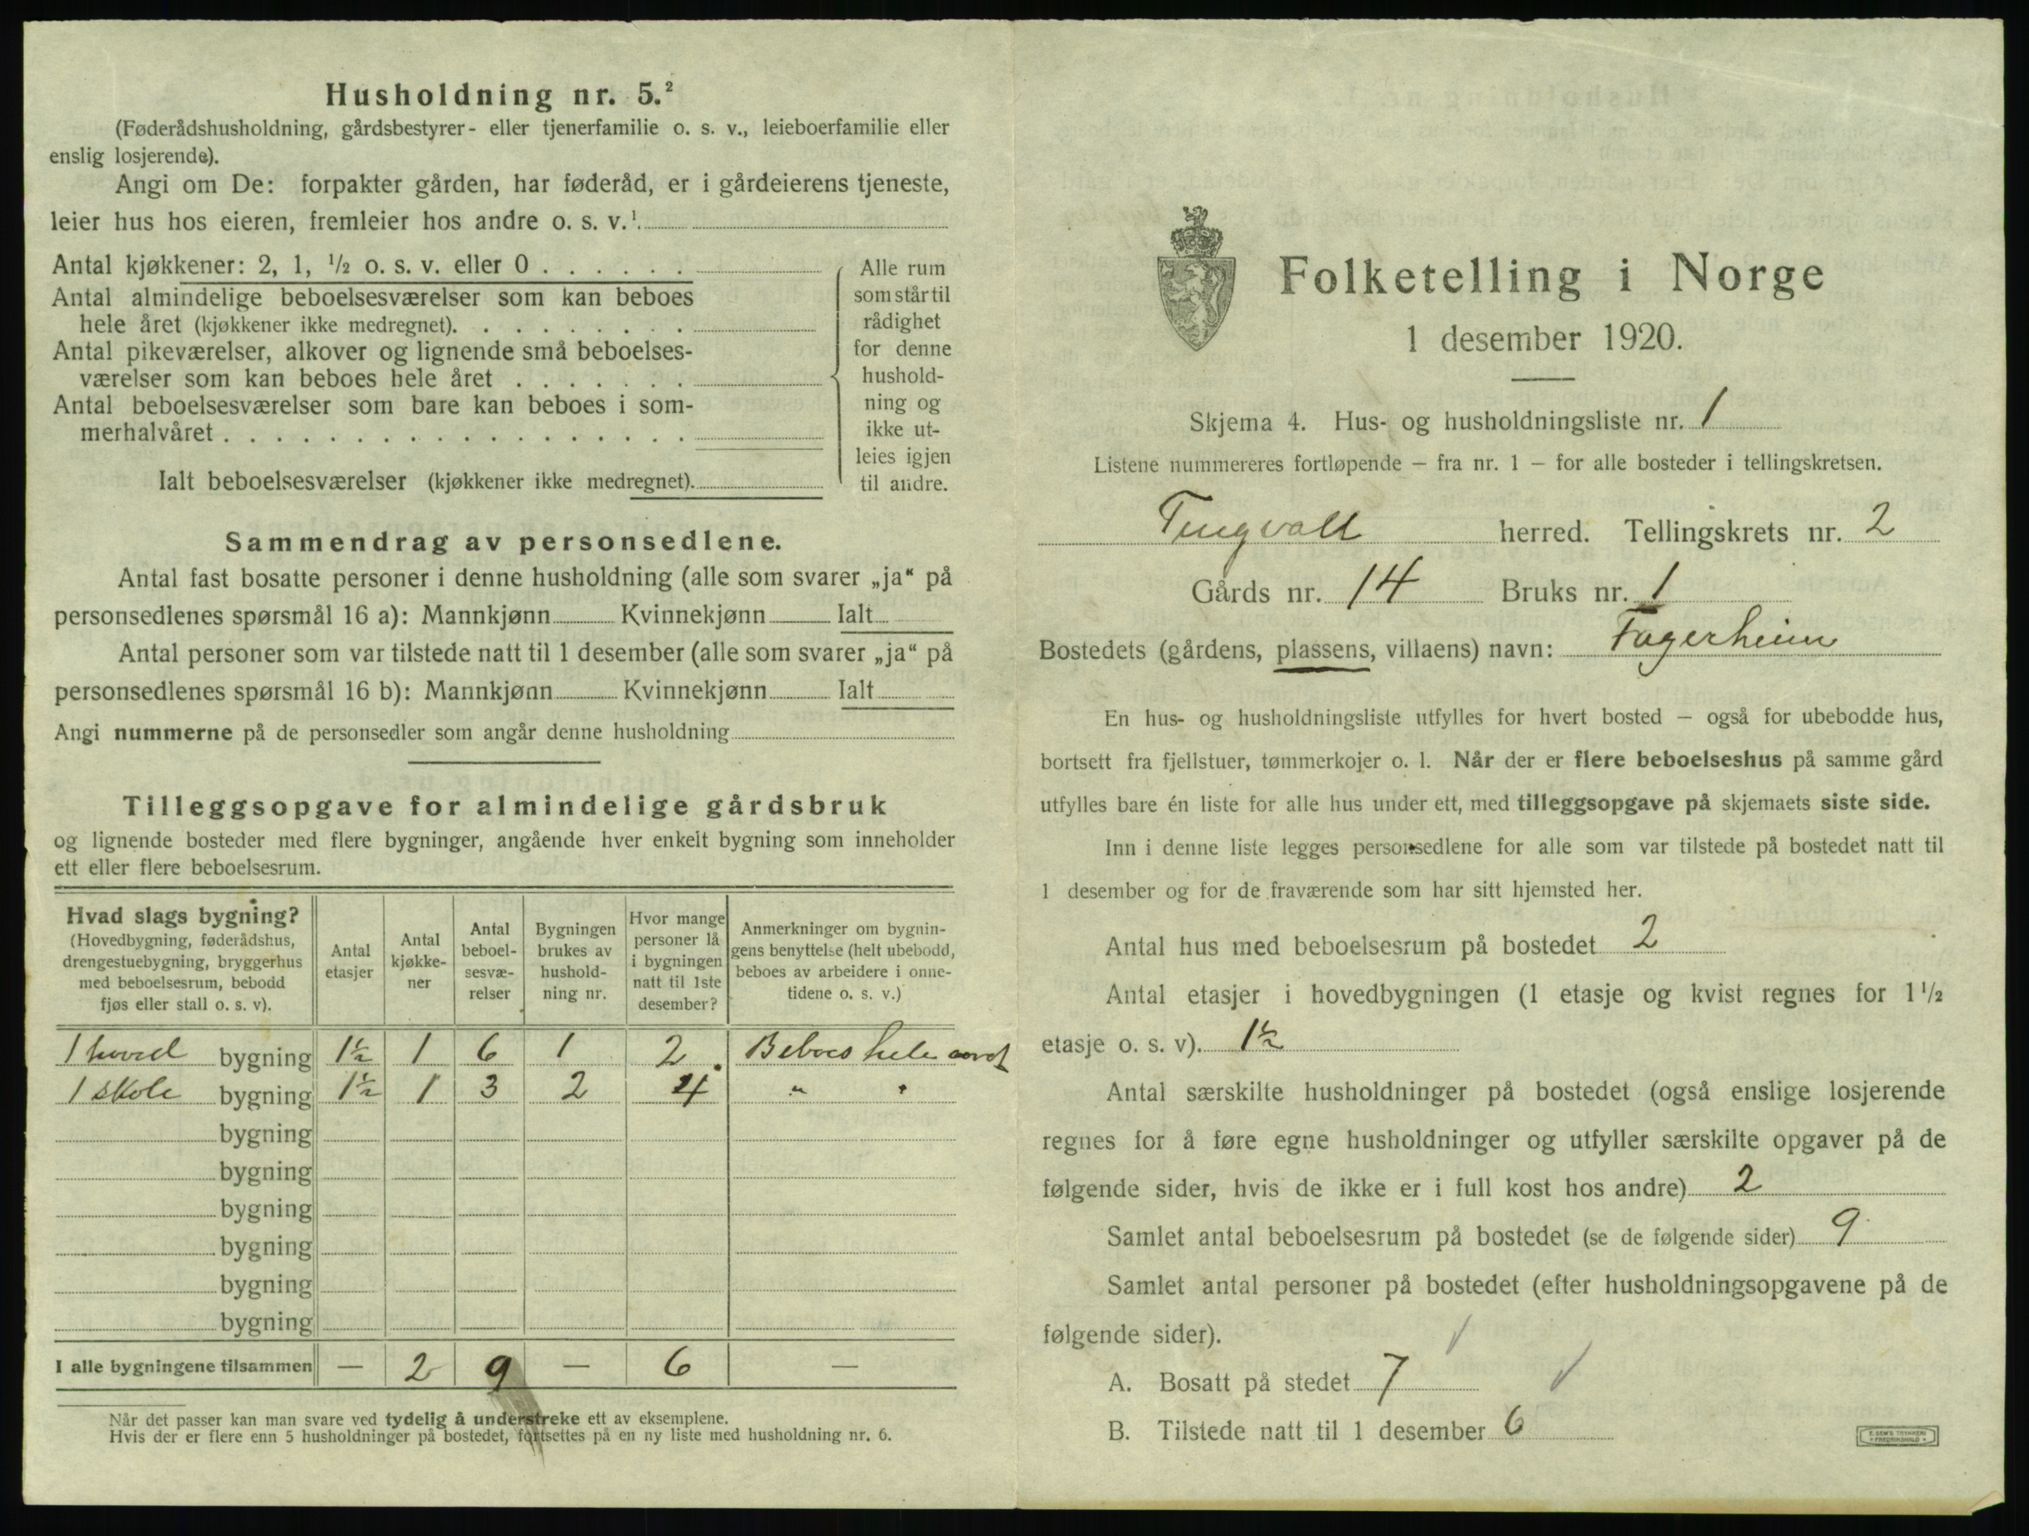 Husholdning nr. 5.²
(Føderådshusholdning, gårdsbestyrer- eller tjenerfamilie o. s. v., leieboerfamilie eller
enslig losjerende).
Angi om De: forpakter gården, har føderåd, er i gårdeierens tjeneste,
leier hus hos eieren, fremleier hos andre o. s. v.¹
Antal kjøkkener: 2, 1, ½ o. s. v. eller 0 . . . . . .
Antal almindelige beboelsesværelser som kan beboes
hele året (kjøkkener ikke medregnet). . . . . . . . .
Antal pikeværelser, alkover og lignende små beboelses-
værelser som kan beboes hele året . . . . . . .
Antal beboelsesværelser som bare kan beboes i som-
merhalvåret . . . . . . . . . . . . . . . . . .
Ialt beboelsesværelser (kjøkkener ikke medregnet).
Alle rum
som står til
rådighet
for denne
hushold-
ning og
ikke ut-
leies igjen
til andre.
Sammendrag av personsedlene.
Antal fast bosatte personer i denne husholdning (alle som svarer „ja“ på
personsedlenes spørsmål 16 a): Mannkjønn Kvinnekjønn Ialt
Antal personer som var tilstede natt til 1 desember (alle som svarer „ja“ på
personsedlenes spørsmål 16 b): Mannkjønn Kvinnekjønn Ialt
Angi nummerne på de personsedler som angår denne husholdning
Tilleggsopgave for almindelige gårdsbruk
og lignende bosteder med flere bygninger, angående hver enkelt bygning som inneholder
ett eller flere beboelsesrum.
Hvad slags bygning?
(Hovedbygning, føderådshus,
drengestuebygning, bryggerhus
med beboelsesrum, bebodd
fjøs eller stall o. s. v).
Antal
etasjer
Antal
kjøkke-
ner
Antal
beboel-
sesvæ-
relser
Bygningen
brukes av
hushold-
ning nr.
Hvor mange
personer lå
i bygningen
natt til 1ste
desember?
Anmerkninger om bygnin-
gens benyttelse (helt ubebodd,
beboes av arbeidere i onne-
tidene o. s. v.)
1 hoved bygning 1½ 1 6 1 2 Beboes hele aaret
1 skole bygning 1½ 1 3 2 4 " "
bygning
bygning
bygning
bygning
bygning
bygning
I alle bygningene tilsammen — 2 9 — 6 —
Når det passer kan man svare ved tydelig å understreke ett av eksemplene.
Hvis der er flere enn 5 husholdninger på bostedet, fortsettes på en ny liste med husholdning nr. 6.
Folketelling i Norge
1 desember 1920.
Skjema 4. Hus- og husholdningsliste nr. 1
Listene nummereres fortløpende — fra nr. 1 — for alle bosteder i tellingskretsen.
Tingvoll herred. Tellingskrets nr. 2
Gårds nr. 14 Bruks nr. 1
Bostedets (gårdens, plassens, villaens) navn: Fagerheim
En hus- og husholdningsliste utfylles for hvert bosted — også for ubebodde hus,
bortsett fra fjellstuer, tømmerkojer o. l. Når der er flere beboelseshus på samme gård
utfylles bare én liste for alle hus under ett, med tilleggsopgave på skjemaets siste side.
Inn i denne liste legges personsedlene for alle som var tilstede på bostedet natt til
1 desember og for de fraværende som har sitt hjemsted her.
Antal hus med beboelsesrum på bostedet 2
Antal etasjer i hovedbygningen (1 etasje og kvist regnes for 1½
etasje o. s. v). 1½
Antal særskilte husholdninger på bostedet (også enslige losjerende
regnes for å føre egne husholdninger og utfyller særskilte opgaver på de
følgende sider, hvis de ikke er i full kost hos andre) 2
Samlet antal beboelsesrum på bostedet (se de følgende sider) 9
Samlet antal personer på bostedet (efter husholdningsopgavene på de
følgende sider).
A. Bosatt på stedet 7
B. Tilstede natt til 1 desember 6